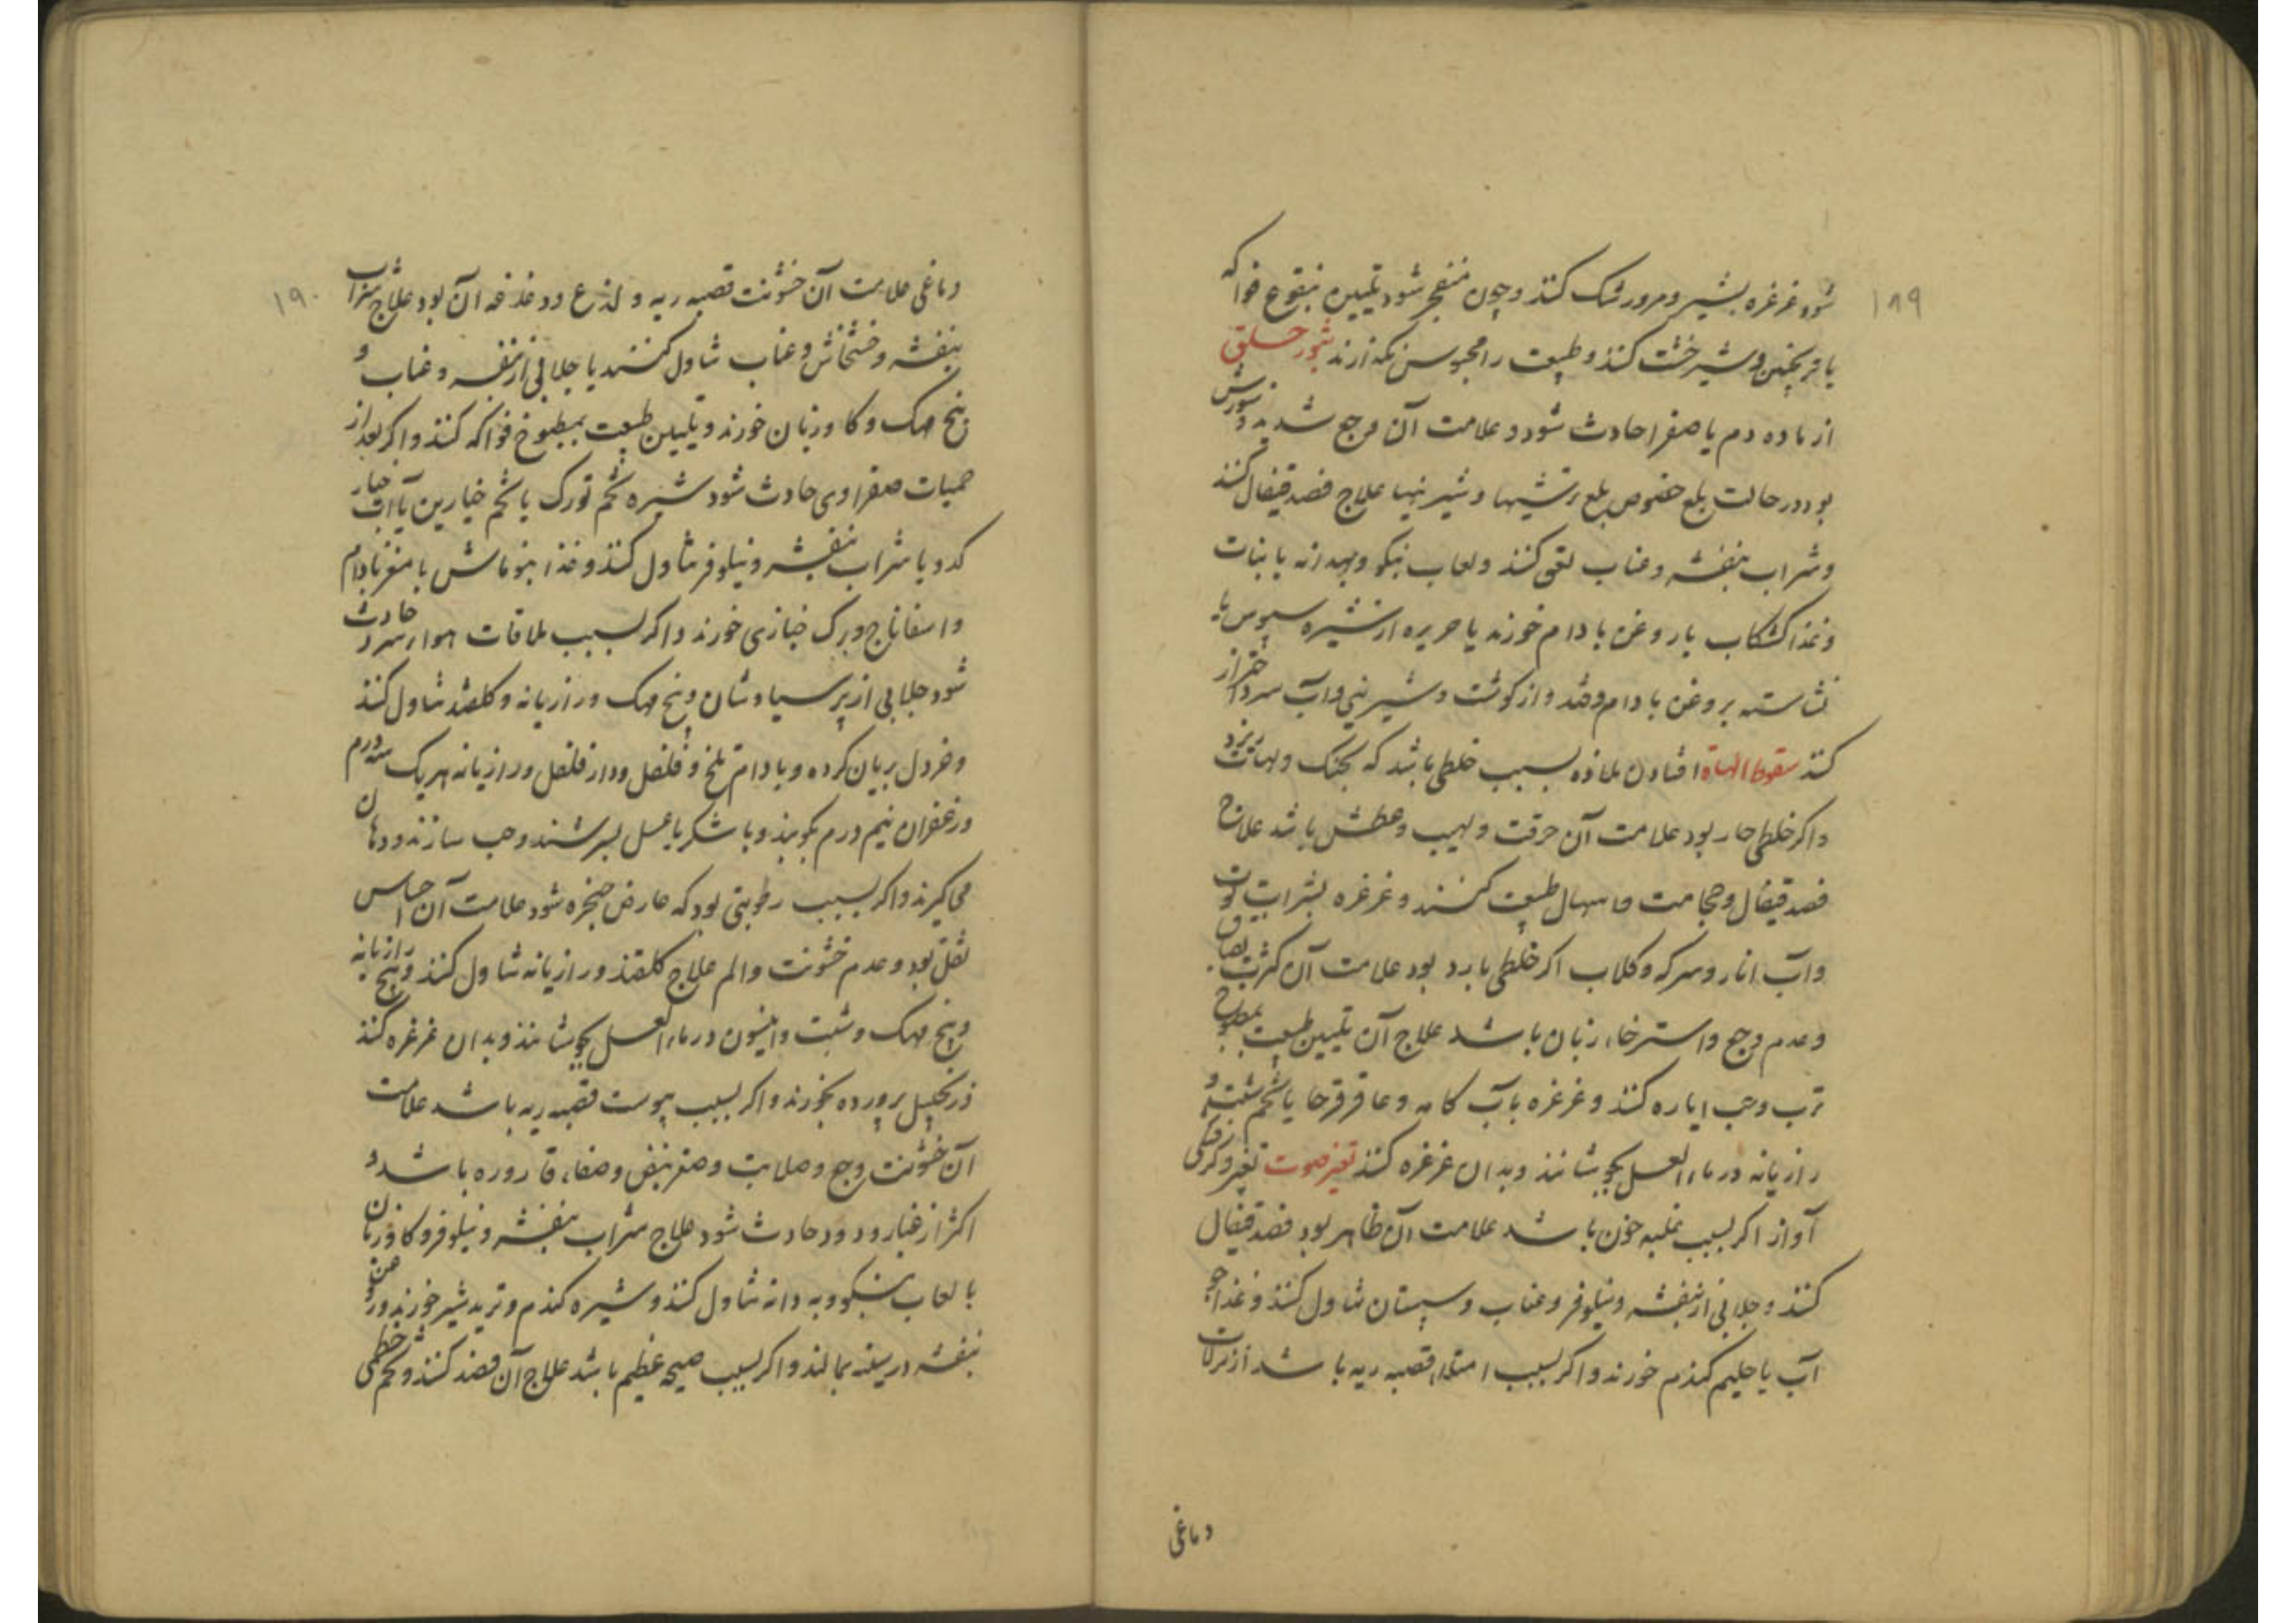 ۱۸۹
شود غرغره بشیر و مرور شک کنند و چون منفجر شود تلیین بنقوع فواکه
یا ترنجبین و شیرخشت کنند و طبیعت را محبوس نگذارند بثور حلق
از ماده دم یا صفرا حادث شود و علامت آن وجع شدید و سورش
بود در حالت بلع خصوص بلع ترشیها و شیرینیها علاج فصد قیفال کنند
و شراب بنفشه و عناب لعق کنند و لعاب بنکو و بهدانه با نبات
و غذا کشکاب با روغن بادام خورند یا حریره از شیره سبوس یا
نشاسته بروغن بادام و قند و از کوشت و شیرینی و آب سرد احتراز
کنند سقوط الهاة افتادن ملاذه بسبب خلطی باشد که بحنک و لهات ریزد
و اکر خلطی حار بود علامت آن حرقت و لهیب و عطش باشد علاج
فصد قیفال و حجامت و اسهال طبیعت کنند و غرغره بشراب توت
و آب انار و سرکه و کلاب اکر خلطی بارد بود علامت آن کثرت بصاق
و عدم وجع و استرخاء زبان باشد علاج آن تلیین طبیعت بمطبوخ
ترب و حب ایاره کنند و غرغره بآب کامه و عاقرقرحا یا تخم شبت و
رازیانه در ماء العسل بجوشانند و بدان غرغره کنند تغیر صوت تغیر و کرفتکی
آواز اکر بسبب غلبه خون باشد علامت آن ظاهر بود فصد قیفال
کنند و جلابی از بنفشه و نیلوفر و عناب و سپستان تناول کنند و غذا جو
آب یا حلیم کندم خورند و اکر بسبب امتلاء قصبه ریه باشد از نزلات
دماغی
۱۹۰
دماغی علامت آن خشونت قصبه ریه و لذع و دغدغه آن بود علاج شراب
بنفشه و خشخاش و عناب تناول کنند یا جلابی از بنفشه و عناب و
بیخ مهک و کاوزبان خورند و تلیین طبیعت بمطبوخ فواکه کنند و اکر بعد از
حمیات صفراوی حادث شود شیره تخم تورک یا تخم خیارین یا آب خیار
کدو با شراب بنفشه و نیلوفر تناول کنند و غذا بنوماش با مغز بادام
و اسفاناج و برک خبازی خورند و اکر بسبب ملاقات هواء سرد حادث
شود جلابی از پرسیاوشان و بیخ مهک و رازیانه و کلقند تناول کنند
و خردل بریان کرده و بادام تلخ و فلفل و دارفلفل و رازیانه هریک سه درم
و زعفران نیم درم بکوبند و با شکر یا عسل بسرشند و حب سازند و در دهان
می گیرند و اکر بسبب رطوبتی بود که عارض حنجره شود علامت آن احساس
ثقل بود و عدم خشونت و الم علاج کلقند و رازیانه تناول کنند و بیخ رازیانه
و بیخ مهک و شبت و انیسون در ماء العسل بجوشانند و بدان غرغره کنند
زنجبیل پرورده بخورند و اکر بسبب یبوست قصبه ریه باشد علامت
آن خشونت و وجع و صلابت و صغر نبض و صفاء قاروره باشد و
اکثر از غبار و دود حادث شود علاج شراب بنفشه و نیلوفر و کاوزبان
با لعاب بنکو و به دانه تناول کنند و شیره کندم و ترید شیر خورند و روغن
بنفشه در سینه بمالند و اکر بسبب صیحه عظیم باشد علاج آن فصد کنند و تخم خطمی